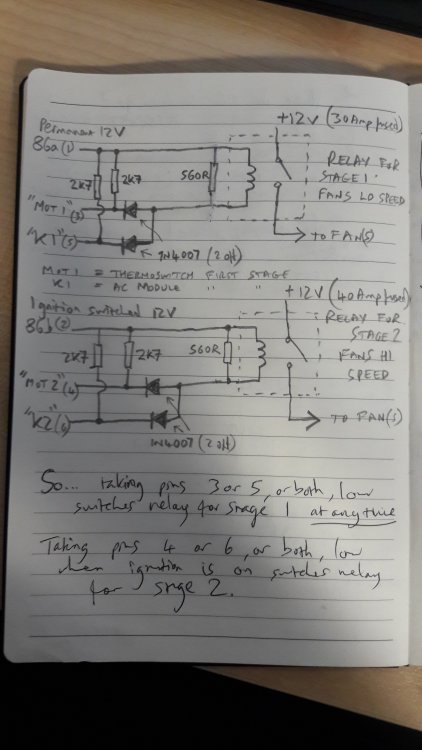 +12V (30Amp fused)
Permanent 12V
86a (1)
RELAY FOR
STAGE 1
FANS LO SPEED
2K7
2K7
560R
"MOT1" (3)
"K1" (5)
TO FAN(S)
1N4007 (2 off)
MOT1 = THERMOSWITCH FIRST STAGE
K1 = AC MODULE " "
+12V (40Amp fused)
Ignition switched 12V
86b (2)
RELAY FOR
STAGE 2
FANS HI
SPEED
2K7
2K7
560R
"MOT2" (4)
"K2" (6)
TO FAN(S)
1N4007 (2 off)
So... taking pins 3 or 5, or both, low
switches relay for stage 1 at any time
Taking pins 4 or 6, or both, low
when ignition is on switches relay
for stage 2.